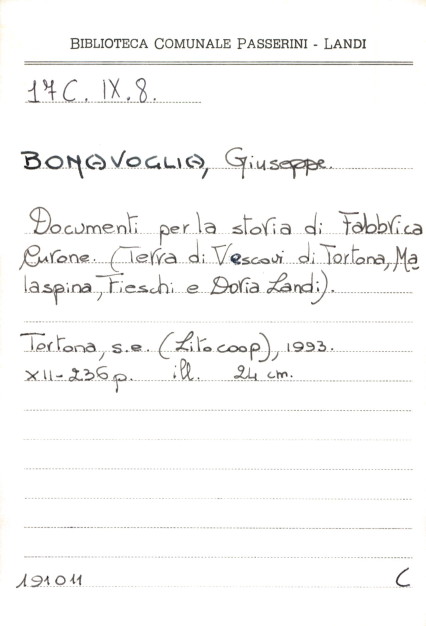 BIBLIOTECA COMUNALE PASSERINI - LANDI
17C. IX. 8.
BONAVOGLIA, Giuseppe.
Documenti per la storia di Fabbrica
Curone. (Terra di Vescovi di Tortona, Ma
laspina, Fieschi e Doria Landi).
Tortona, s.e. (Litocoop), 1993.
XII-236p. ill. 24 cm.
191011 C